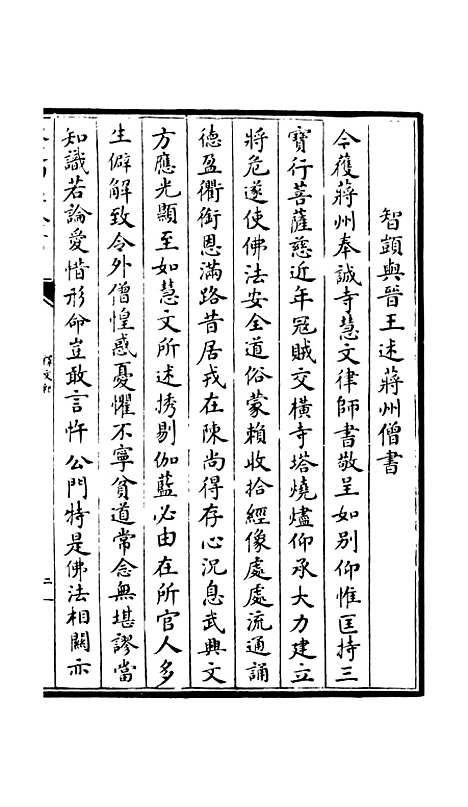 智顗與晉王述蔣州僧書
今獲蔣州奉誠寺慧文律師書敬呈如別仰惟匡持三
寶行菩薩慈近年冠賊交橫寺塔燒燼仰承大力建立
將危遂使佛法安全道俗蒙賴收拾經像處處流通誦
德盈衢衘恩滿路昔居戎在陳尚得存心沉息武興文
方應光顯至如慧文所述撁剔伽藍必由在所官人多
生僻解致令外僧惶惑憂懼不寧貧道常念無堪謬當
知識若論愛惜形命豈敢言忤 公門特是佛法相關亦
釋文紀
二